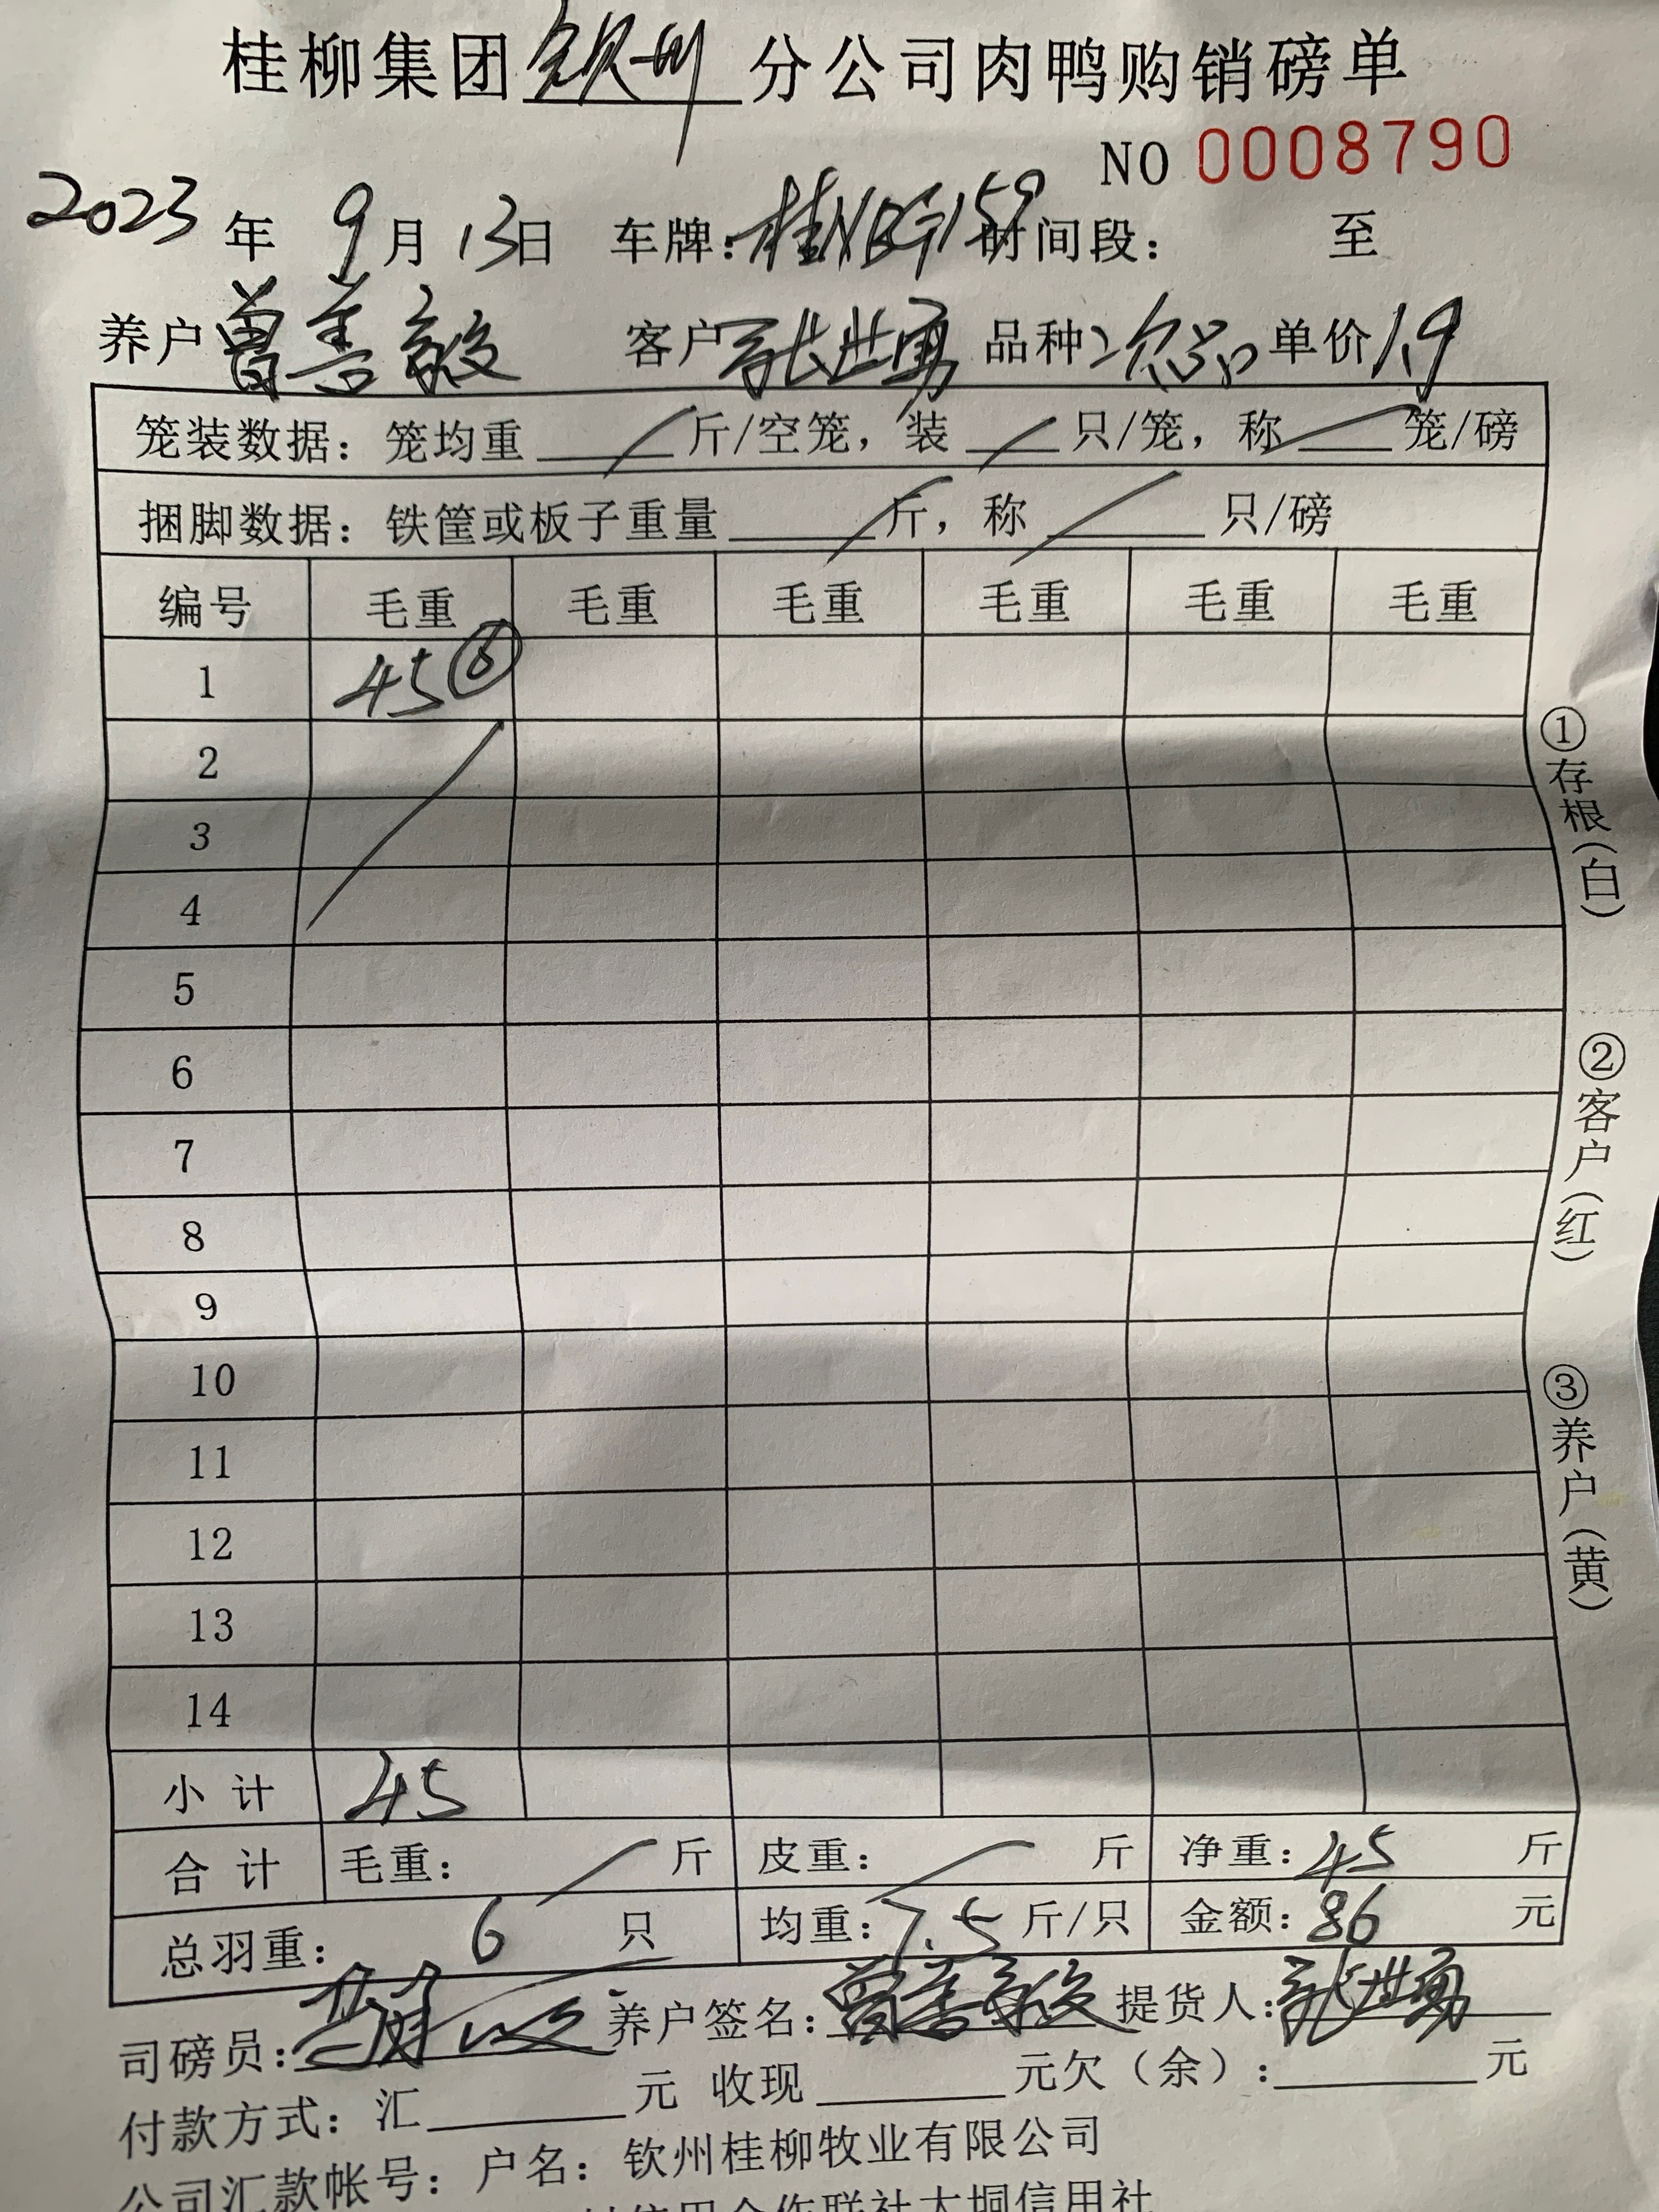 桂柳集团钦州分公司肉鸭购销磅单
NO 0008790
2023年 9月 13日 车牌：桂N 159 时间段： 至
养户 曾善 客户 张世勇 品种 次品 单价 1.9
笼装数据：笼均重 / 斤/空笼，装 / 只/笼，称 / 笼/磅
捆脚数据：铁筐或板子重量 / 斤，称 / 只/磅
编号 毛重 毛重 毛重 毛重 毛重 毛重
1 45 ⑥
2
3
4
5
6
7
8
9
10
11
12
13
14
小计 45
合计 毛重： / 斤 皮重： / 斤 净重：45 斤
总羽重： 6 只 均重：7.5 斤/只 金额：86 元
司磅员： 养户签名：曾善 提货人：张世勇
付款方式：汇 元 收现 元欠（余）： 元
公司汇款帐号：户名：钦州桂柳牧业有限公司
信用合作联社大垌信用社
①存根（白）
②客户（红）
③养户（黄）